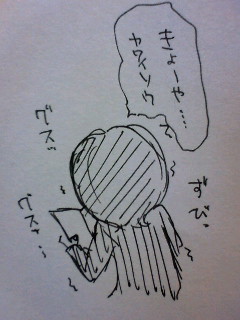 きょーや…
カワイソウ
グスッ
ずびっ
グスッ…